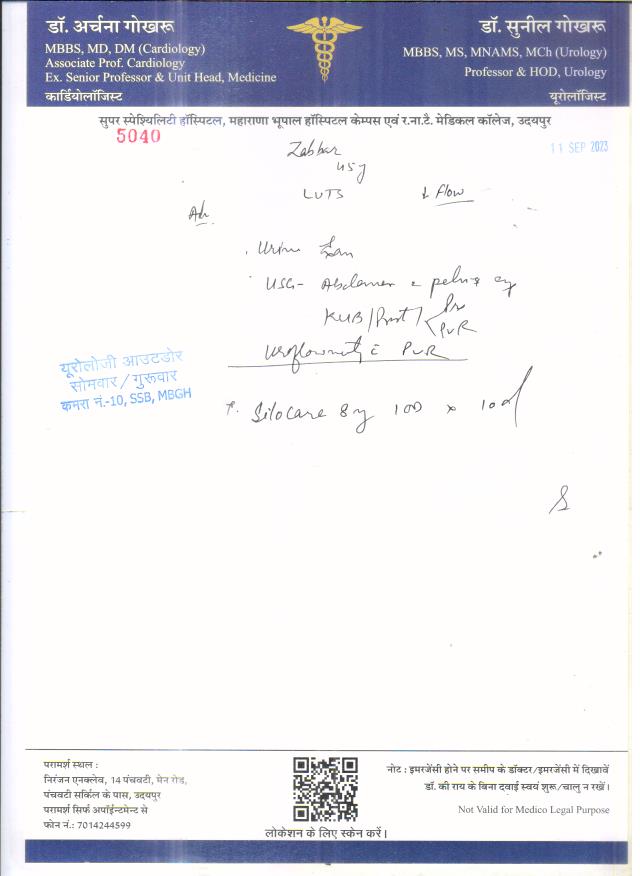 डॉ. अर्चना गोखरू
MBBS, MD, DM (Cardiology)
Associate Prof. Cardiology
Ex. Senior Professor & Unit Head, Medicine
कार्डियोलॉजिस्ट
डॉ. सुनील गोखरू
MBBS, MS, MNAMS, MCh (Urology)
Professor & HOD, Urology
यूरोलॉजिस्ट
सुपर स्पेश्यिलिटी हॉस्पिटल, महाराणा भूपाल हॉस्पिटल केम्पस एवं र.ना.टै. मेडिकल कॉलेज, उदयपुर
5040
11 SEP 2023
Zabbar
45y
LUTS ↓ flow
Adv
USG- Abdomen pelvis
KUB/Prost/ Pre
PVR
Uroflowmetry c̄ PVR
यूरोलोजी आउटडोर
सोमवार / गुरूवार
कमरा नं.-10, SSB, MBGH
T. Silocare 8 1OD x 10d
परामर्श स्थल :
निरंजन एनक्लेव, 14 पंचवटी, मेन रोड,
पंचवटी सर्किल के पास, उदयपुर
परामर्श सिर्फ अपॉईन्टमेन्ट से
फोन नं.: 7014244599
लोकेशन के लिए स्केन करें।
नोट : इमरजेंसी होने पर समीप के डॉक्टर/इमरजेंसी में दिखावें
डॉ. की राय के बिना दवाई स्वयं शुरू/चालु न रखें।
Not Valid for Medico Legal Purpose